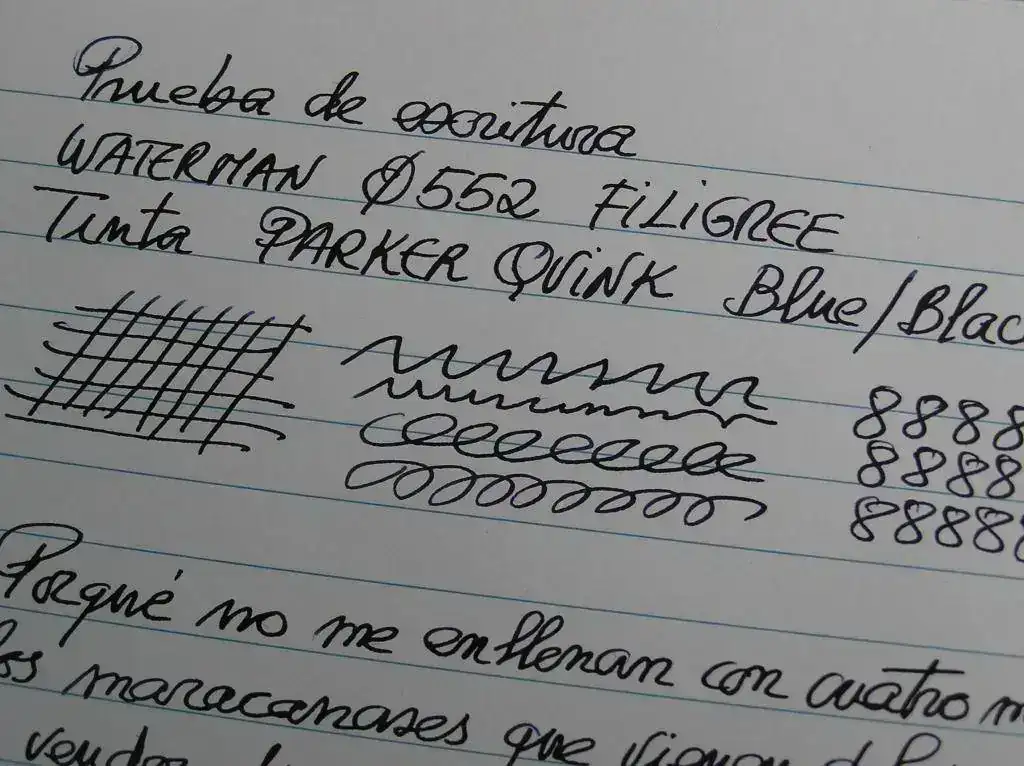 Prueba de escritura
WATERMAN 0552 FiLiGREE
Tinta PARKER QUiNK Blue/Blac
8888
8888
8888
Porqué no me enllenan con cuatro
los maracanases que